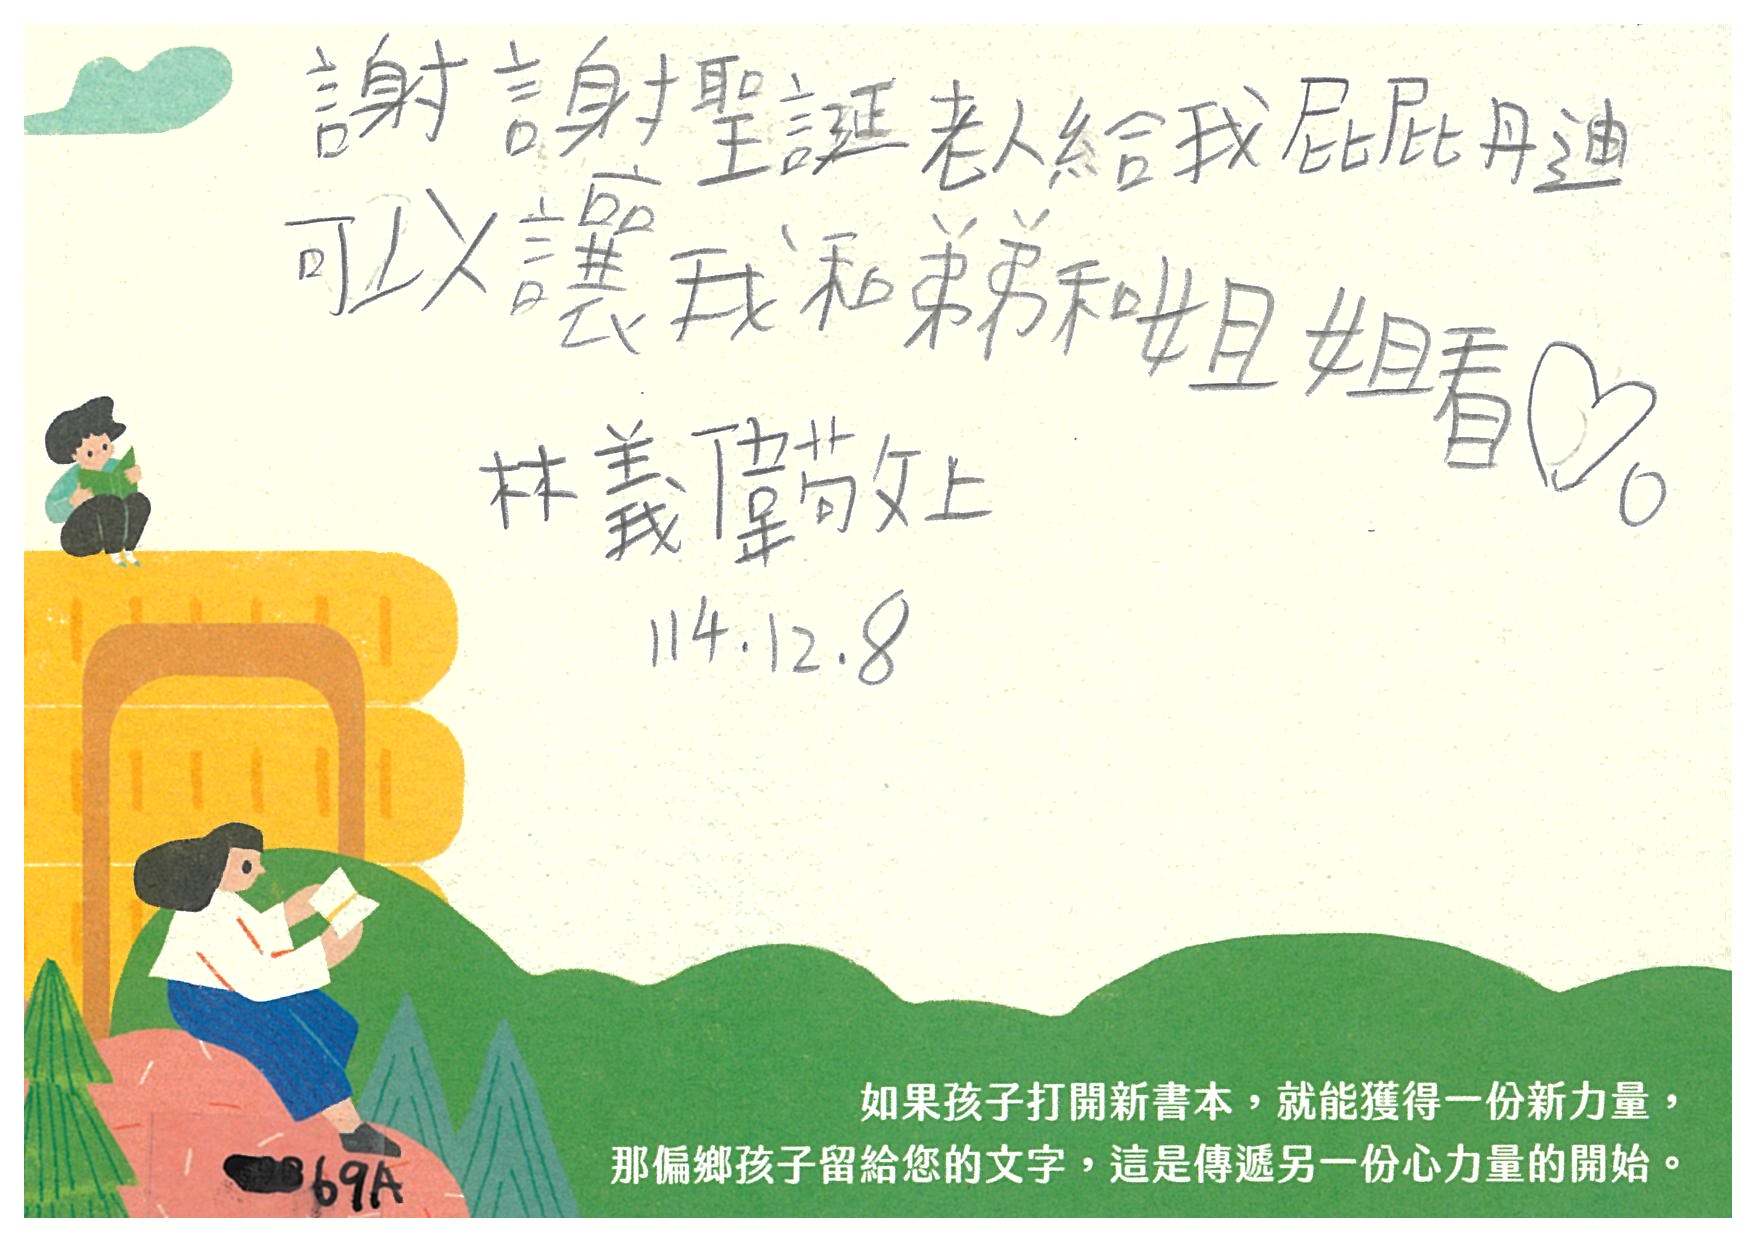 謝謝聖誕老人給我屁屁丹迪
可以讓我和弟弟和姐姐看♡。
林義偉敬上
114.12.8
69A
如果孩子打開新書本，就能獲得一份新力量，
那偏鄉孩子留給您的文字，這是傳遞另一份心力量的開始。